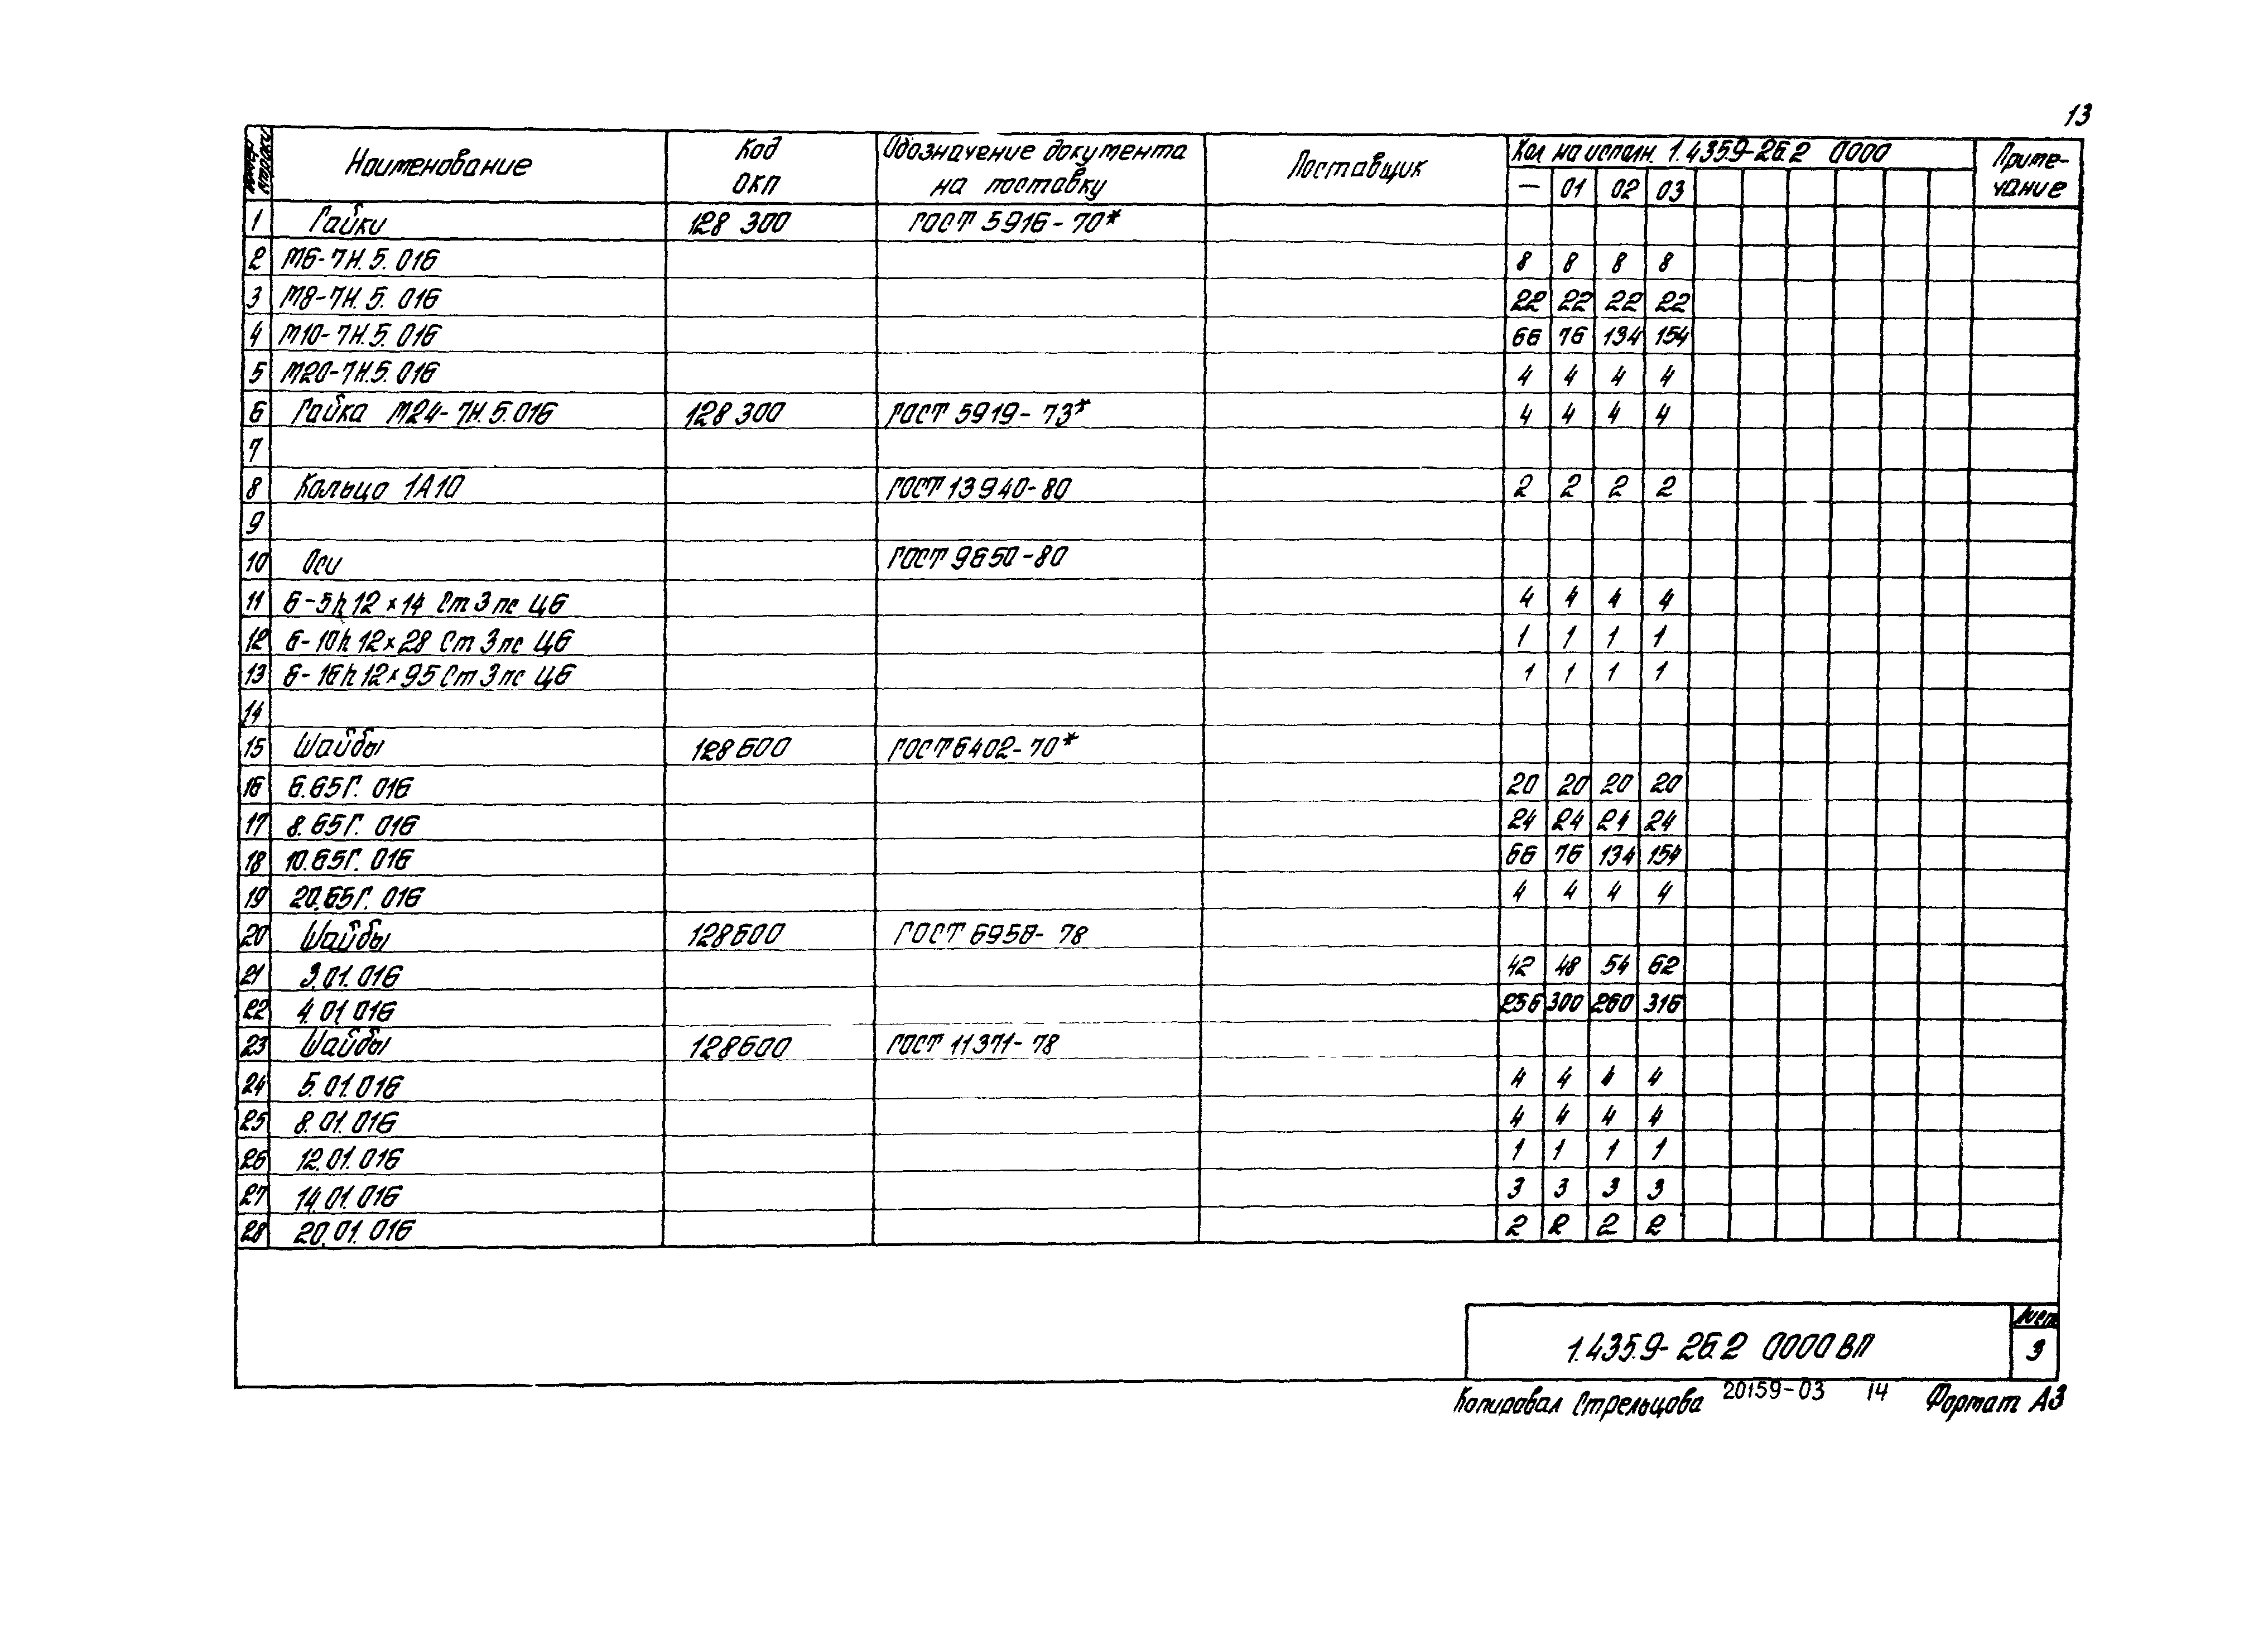 13
Номер строки Наименование Код ОКП Обозначение документа на поставку Поставщик Кол на исполн. 1.435.9-26.2 0000 Приме-чание
— 01 02 03
1 Гайки 128 300 ГОСТ 5916-70*
2 М6-7Н.5.016 8 8 8 8
3 М8-7Н.5.016 22 22 22 22
4 М10-7Н.5.016 66 76 134 154
5 М20-7Н.5.016 4 4 4 4
6 Гайка М24-7Н.5.016 128 300 ГОСТ 5919-73* 4 4 4 4
7
8 Кольцо 1А10 ГОСТ 13940-80 2 2 2 2
9
10 Оси ГОСТ 9650-80
11 6-5h12×14 Ст3пс Ц6 4 4 4 4
12 6-10h12×28 Ст3пс Ц6 1 1 1 1
13 6-16h12×95 Ст3пс Ц6 1 1 1 1
14
15 Шайбы 128600 ГОСТ 6402-70*
16 6.65Г.016 20 20 20 20
17 8.65Г.016 24 24 24 24
18 10.65Г.016 66 76 134 154
19 20.65Г.016 4 4 4 4
20 Шайбы 128600 ГОСТ 6958-78
21 3.01.016 42 48 54 62
22 4.01 016 256 300 260 316
23 Шайбы 128600 ГОСТ 11371-78
24 5.01.016 4 4 4 4
25 8.01.016 4 4 4 4
26 12.01.016 1 1 1 1
27 14.01.016 3 3 3 3
28 20.01.016 2 2 2 2
1.435.9-26.2 0000 ВП
Лист
3
Копировал Стрельцова 20159-03 14 Формат А3